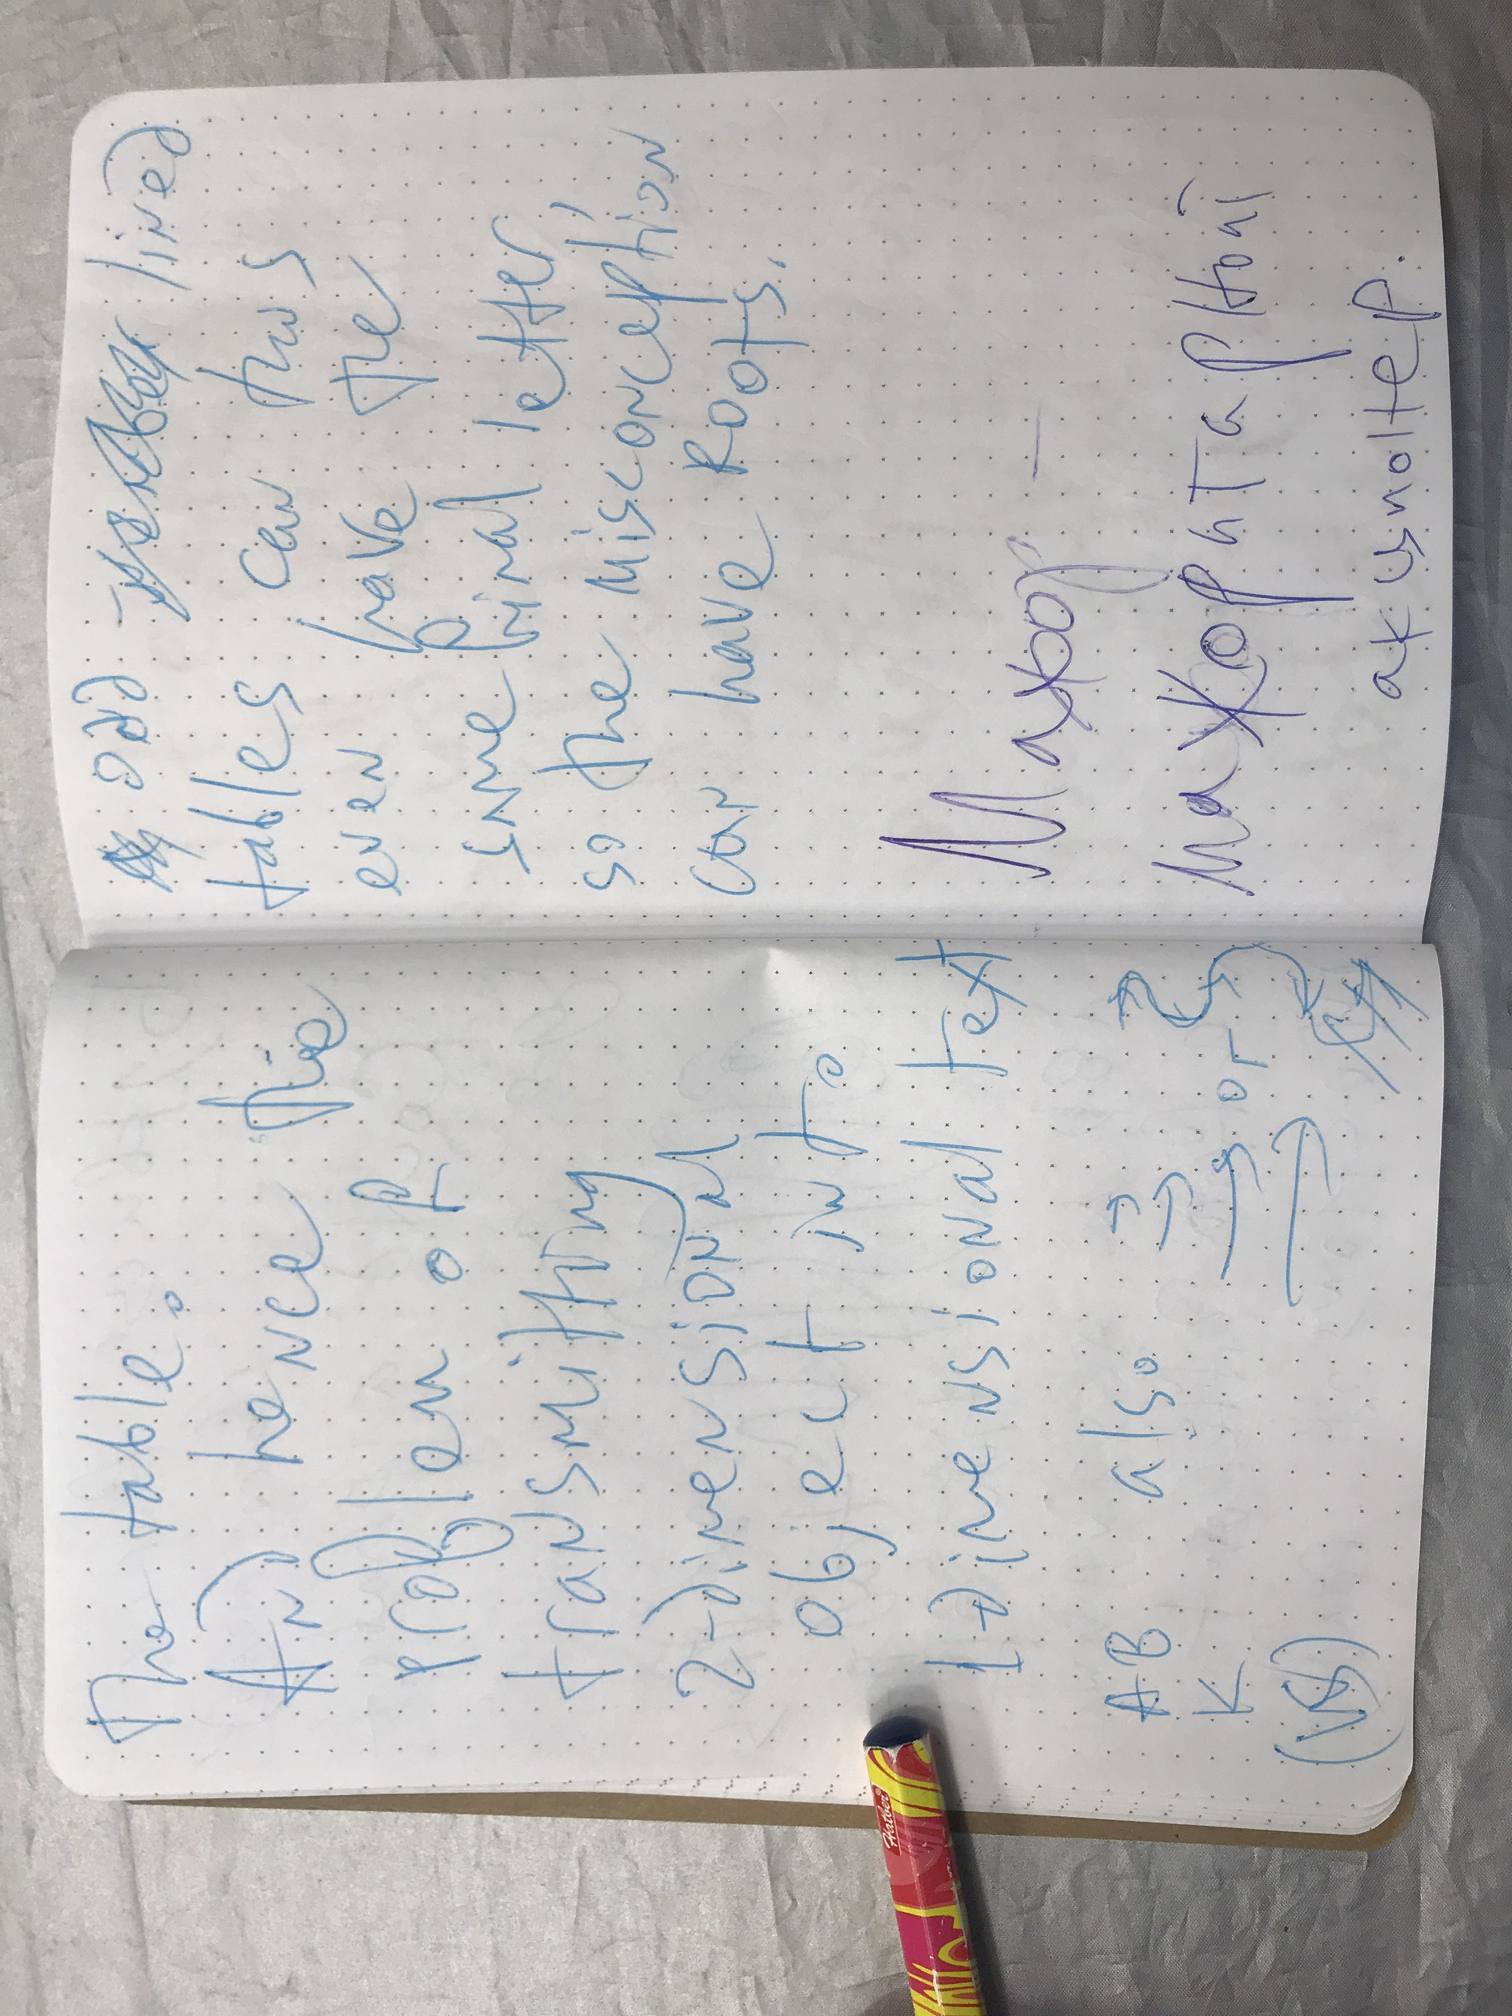 The table.
And hence the
problem of
transmitting
2-dimensional
object into
1-dimensional text
AB also
K or
odd lined
tables can thus
even have the
same final letter,
so the misconception
can have roots.
Мажор –
мажоритарный
акционер.
Hatber